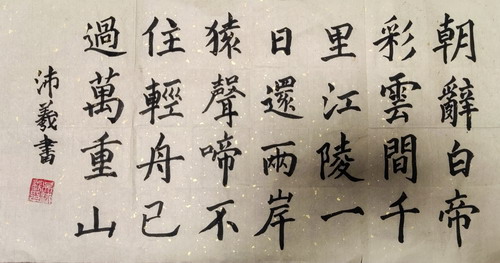 朝辭白帝
彩雲間千
里江陵一
日還兩岸
猿聲啼不
住輕舟已
過萬重山
沛羲書